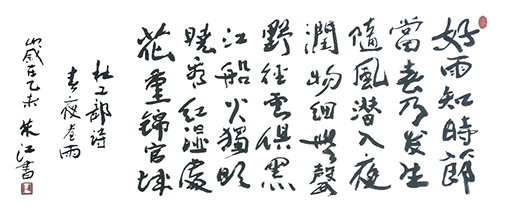 好雨知時節
當春乃发生
隨風潛入夜
潤物細無聲
野径雲俱黑
江船火獨明
曉看紅濕處
花重錦官城
杜工部詩
春夜喜雨
歲在乙未 江書